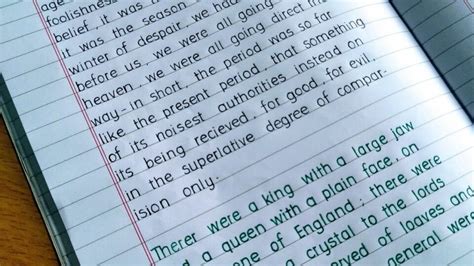 age
foolishness
belief, it was
it was the season
winter of despair, we had
before us, we were all going
heaven, we were all going direct the
way - in short, the period was so far
like the present period, that something
of its noisest authorities instead on
its being recieved, for good, for evil,
in the superlative degree of compar-
ision only.
Therer were a king with a large jaw
d a queen with a plain face, on
ne of England; there were
a crystal to the lords
rved of loaves and
general were